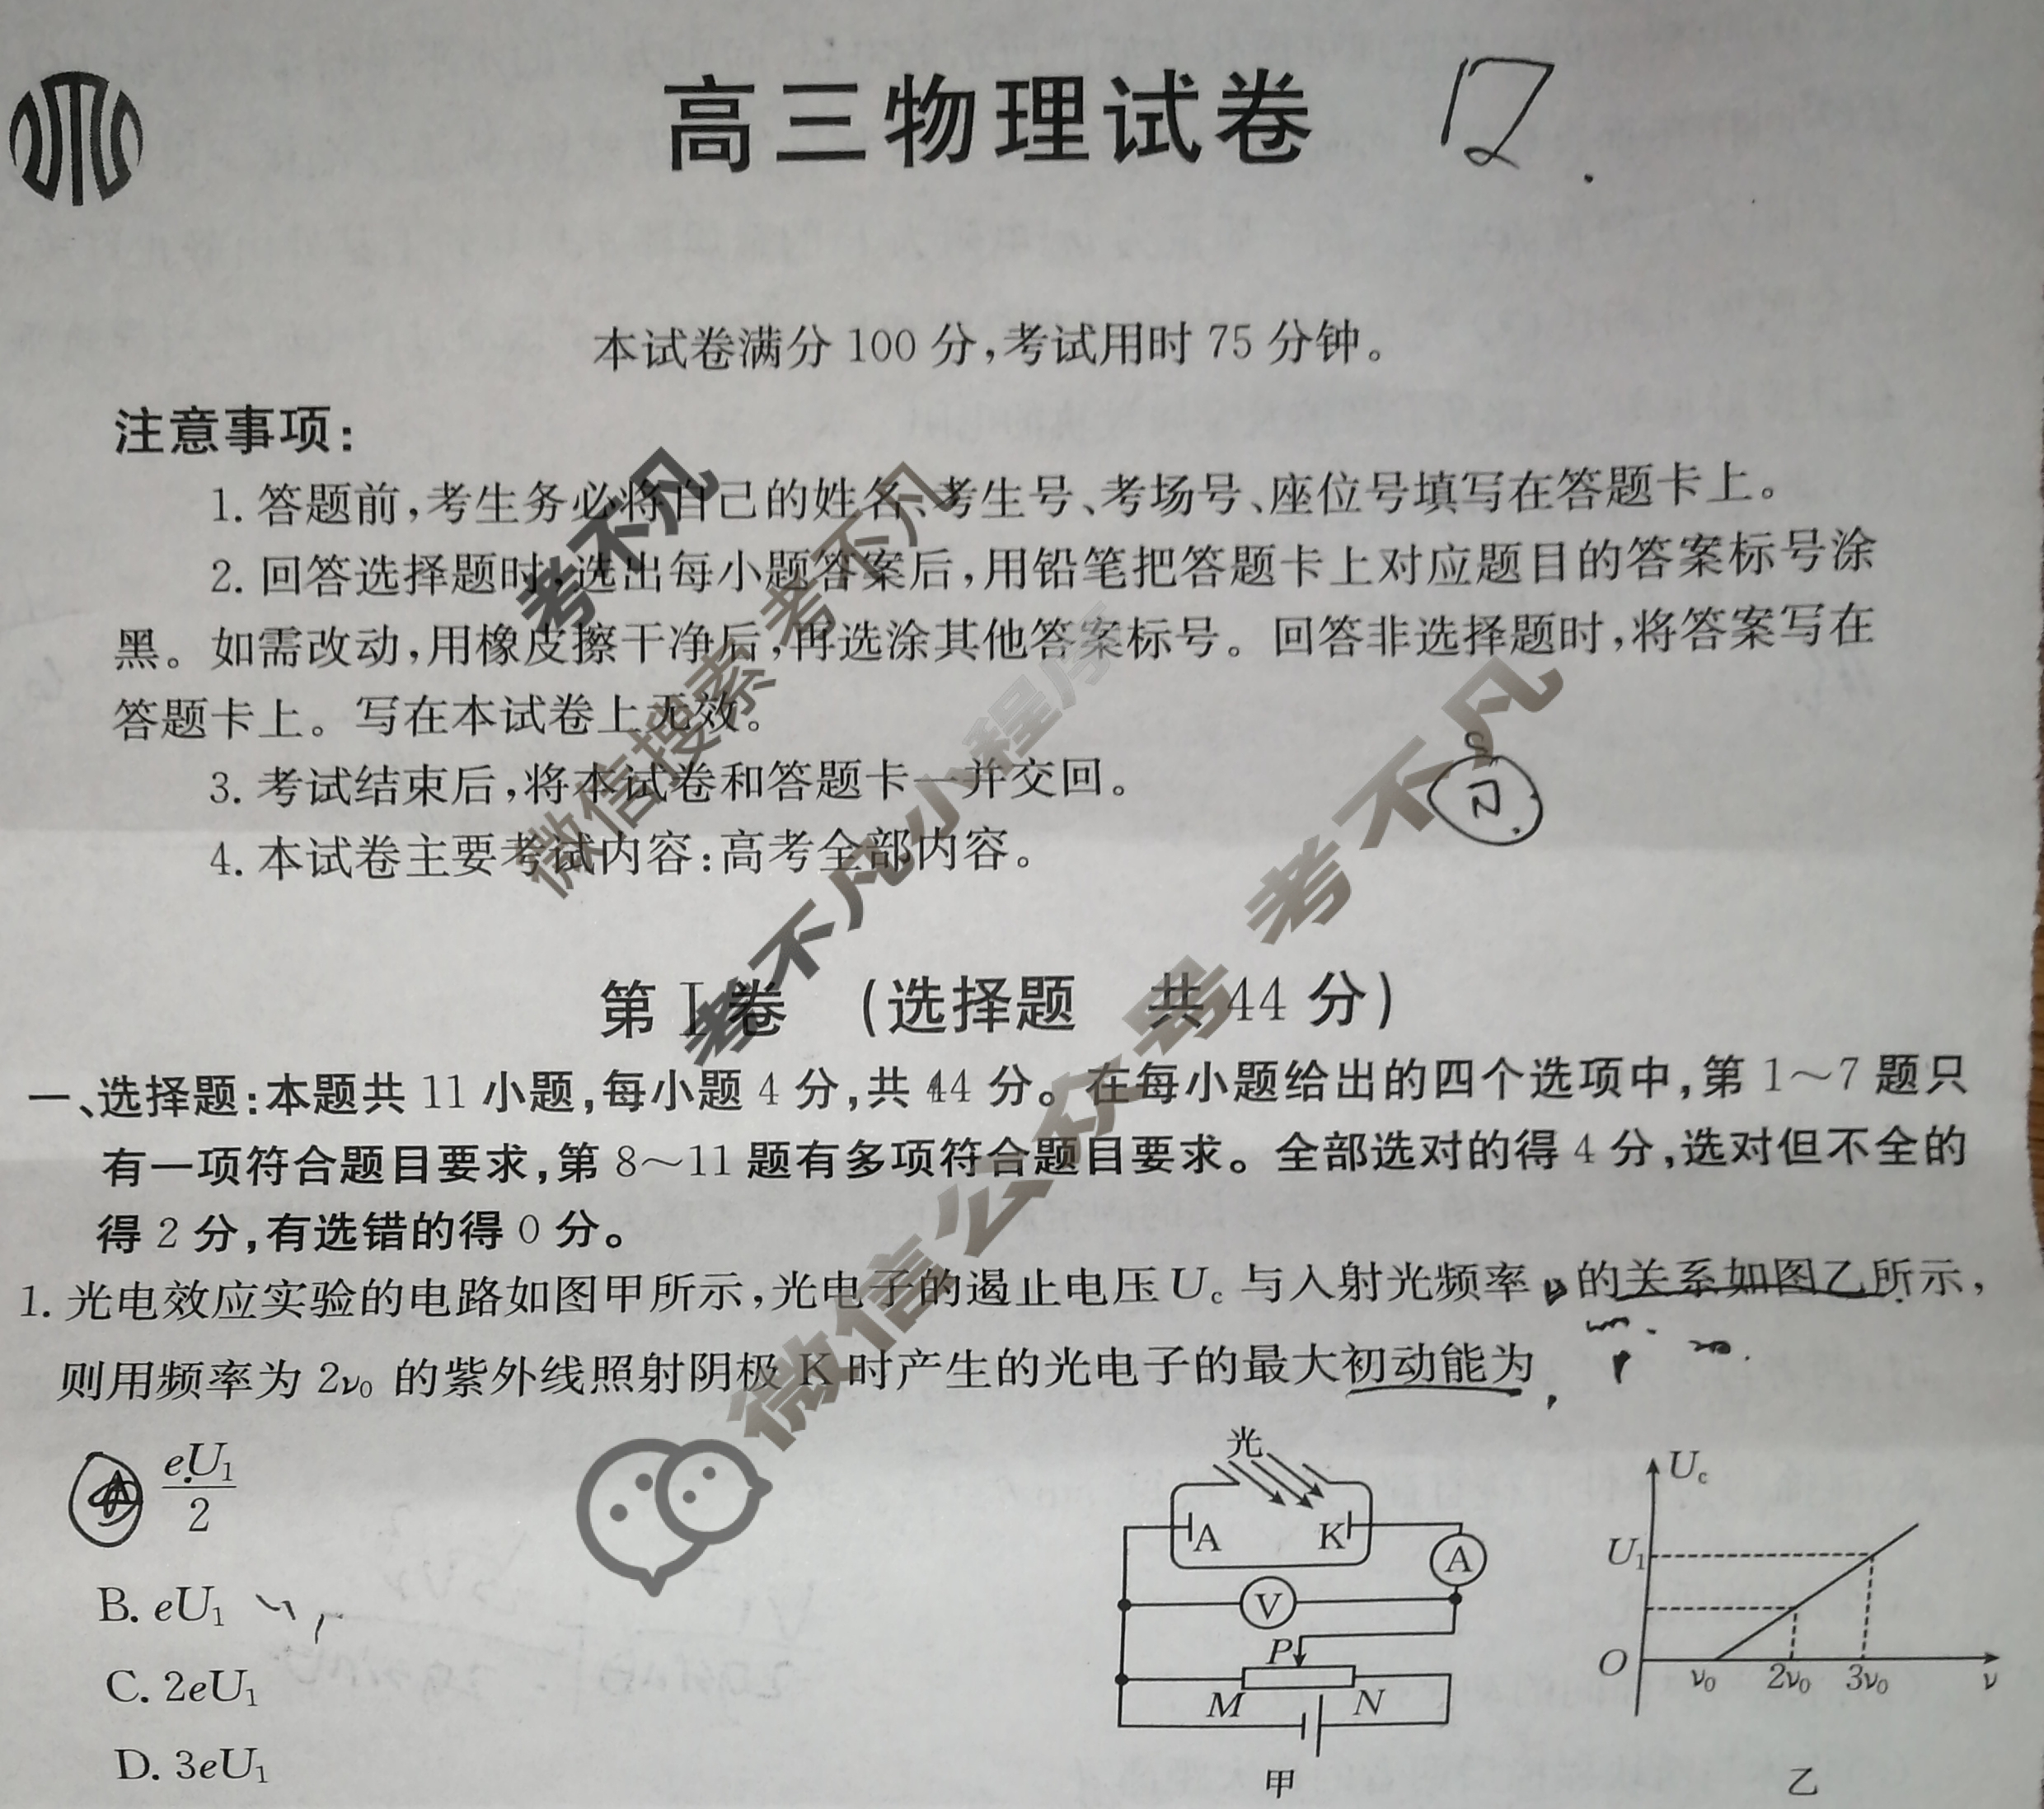 高三物理试卷 12.
本试卷满分 100 分,考试用时 75 分钟。
注意事项:
1. 答题前,考生务必将自己的姓名、考生号、考场号、座位号填写在答题卡上。
2. 回答选择题时,选出每小题答案后,用铅笔把答题卡上对应题目的答案标号涂
黑。如需改动,用橡皮擦干净后,再选涂其他答案标号。回答非选择题时,将答案写在
答题卡上。写在本试卷上无效。
3. 考试结束后,将本试卷和答题卡一并交回。
4. 本试卷主要考试内容:高考全部内容。
考不凡
微信搜索 考不凡
考不凡小程序
微信公众号 考不凡
第 I 卷 (选择题 共 44 分)
一、选择题:本题共 11 小题,每小题 4 分,共 44 分。在每小题给出的四个选项中,第 1～7 题只
有一项符合题目要求,第 8～11 题有多项符合题目要求。全部选对的得 4 分,选对但不全的
得 2 分,有选错的得 0 分。
1. 光电效应实验的电路如图甲所示,光电子的遏止电压 Uc 与入射光频率 ν 的关系如图乙所示,
则用频率为 2ν0 的紫外线照射阴极 K 时产生的光电子的最大初动能为
A eU1/2
B. eU1
C. 2eU1
D. 3eU1
光
A K A
V
P
M N
甲
Uc
U1
O ν0 2ν0 3ν0 ν
乙